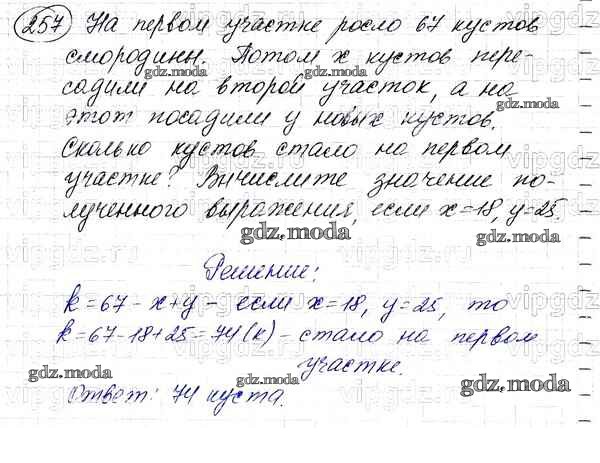 257 На первом участке росло 67 кустов
смородины. Потом x кустов пере-
садили на второй участок, а на
этот посадили y новых кустов.
Сколько кустов стало на первом
участке? Вычислите значение по-
лученного выражения, если x=18, y=25.
Решение:
k=67-x+y - если x=18, y=25, то
k=67-18+25=74(к) - стало на первом
участке.
Ответ: 74 куста.
gdz.moda
gdz.moda
gdz.moda
gdz.moda
gdz.moda
gdz.moda
gdz.moda
gdz.moda
gdz.moda
vipgdz.ru